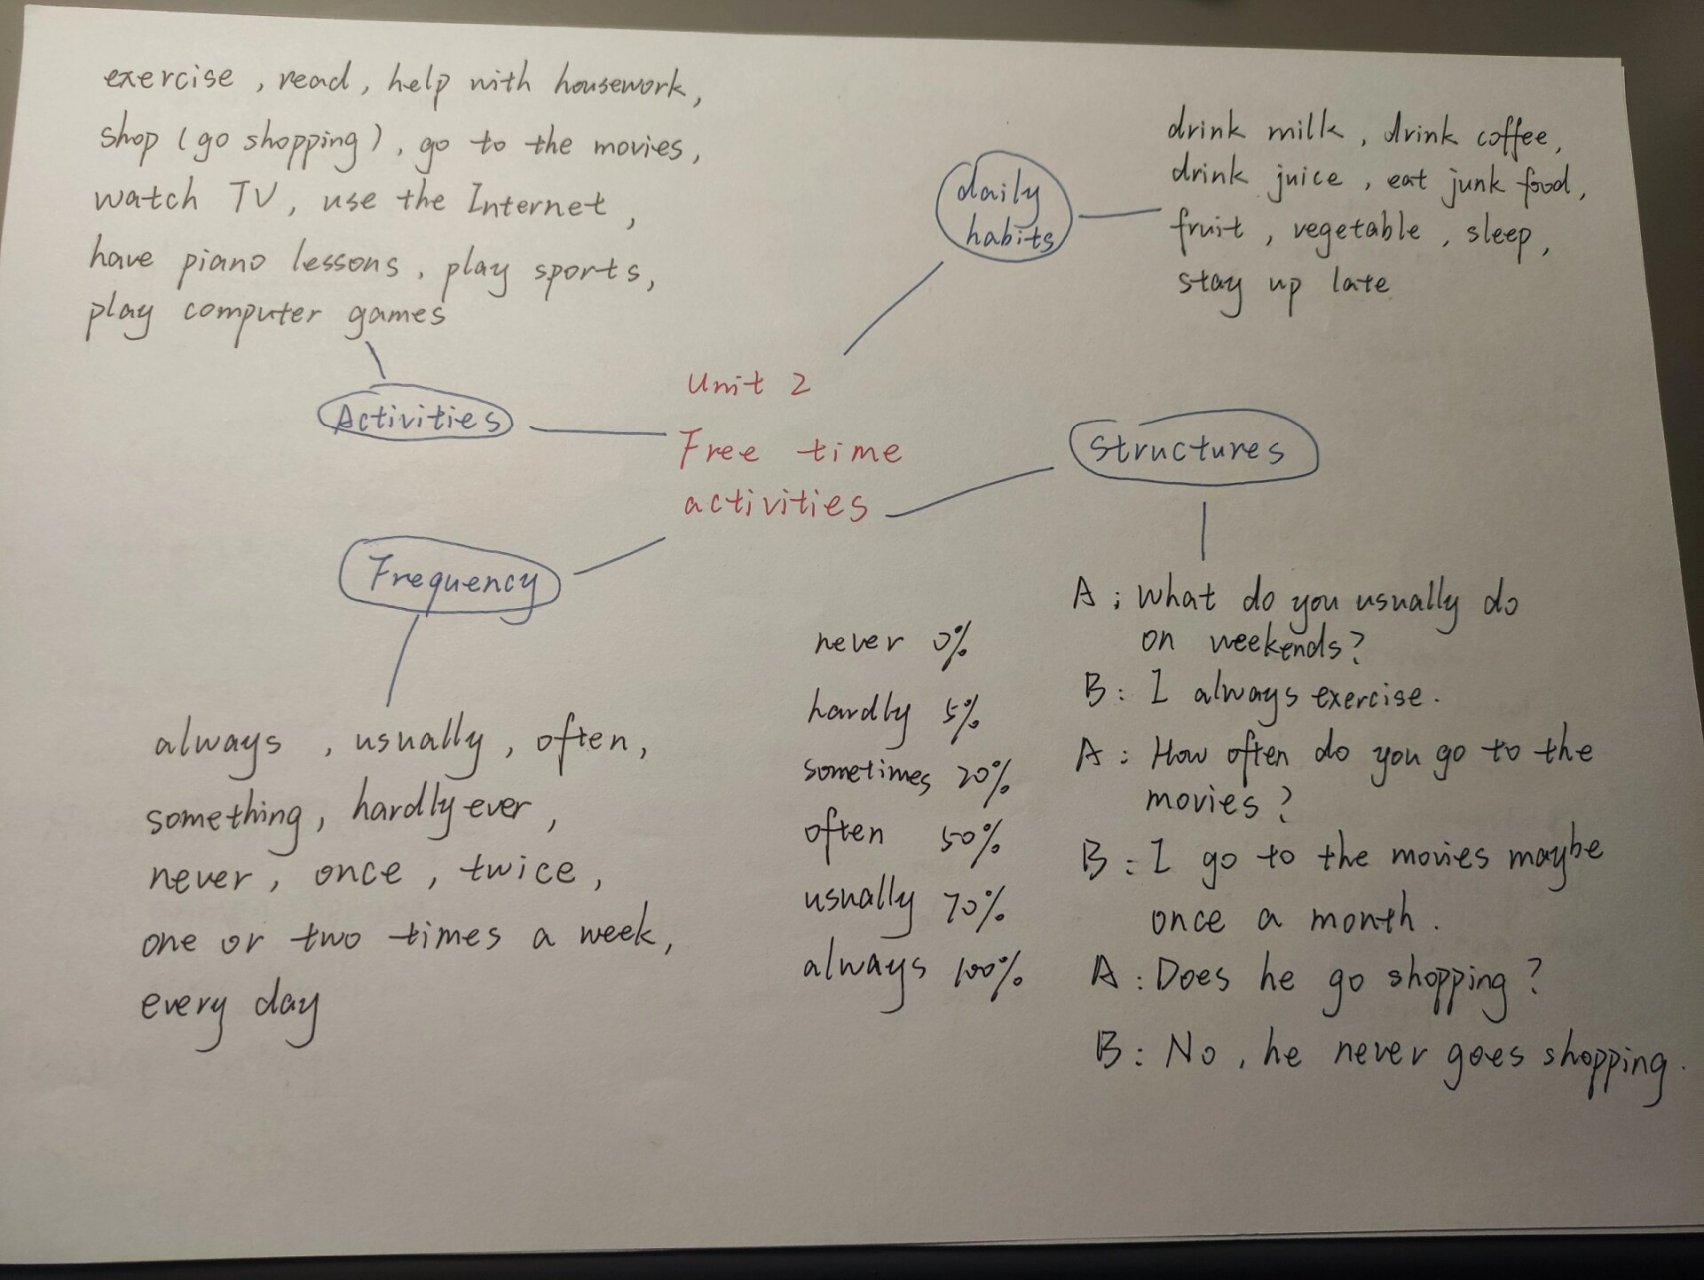 exercise , read , help with housework,
shop ( go shopping ) , go to the movies,
watch TV , use the Internet ,
have piano lessons , play sports,
play computer games
Activities
daily
habits
drink milk , drink coffee,
drink juice , eat junk food,
fruit , vegetable , sleep,
stay up late
Unit 2
Free time
activities
Frequency
always , usually , often,
something, hardly ever ,
never , once , twice ,
one or two times a week,
every day
never 0%
hardly 5%
sometimes 20%
often 50%
usually 70%
always 100%
Structures
A : What do you usually do
on weekends?
B : I always exercise .
A : How often do you go to the
movies ?
B : I go to the movies maybe
once a month .
A : Does he go shopping ?
B : No , he never goes shopping.